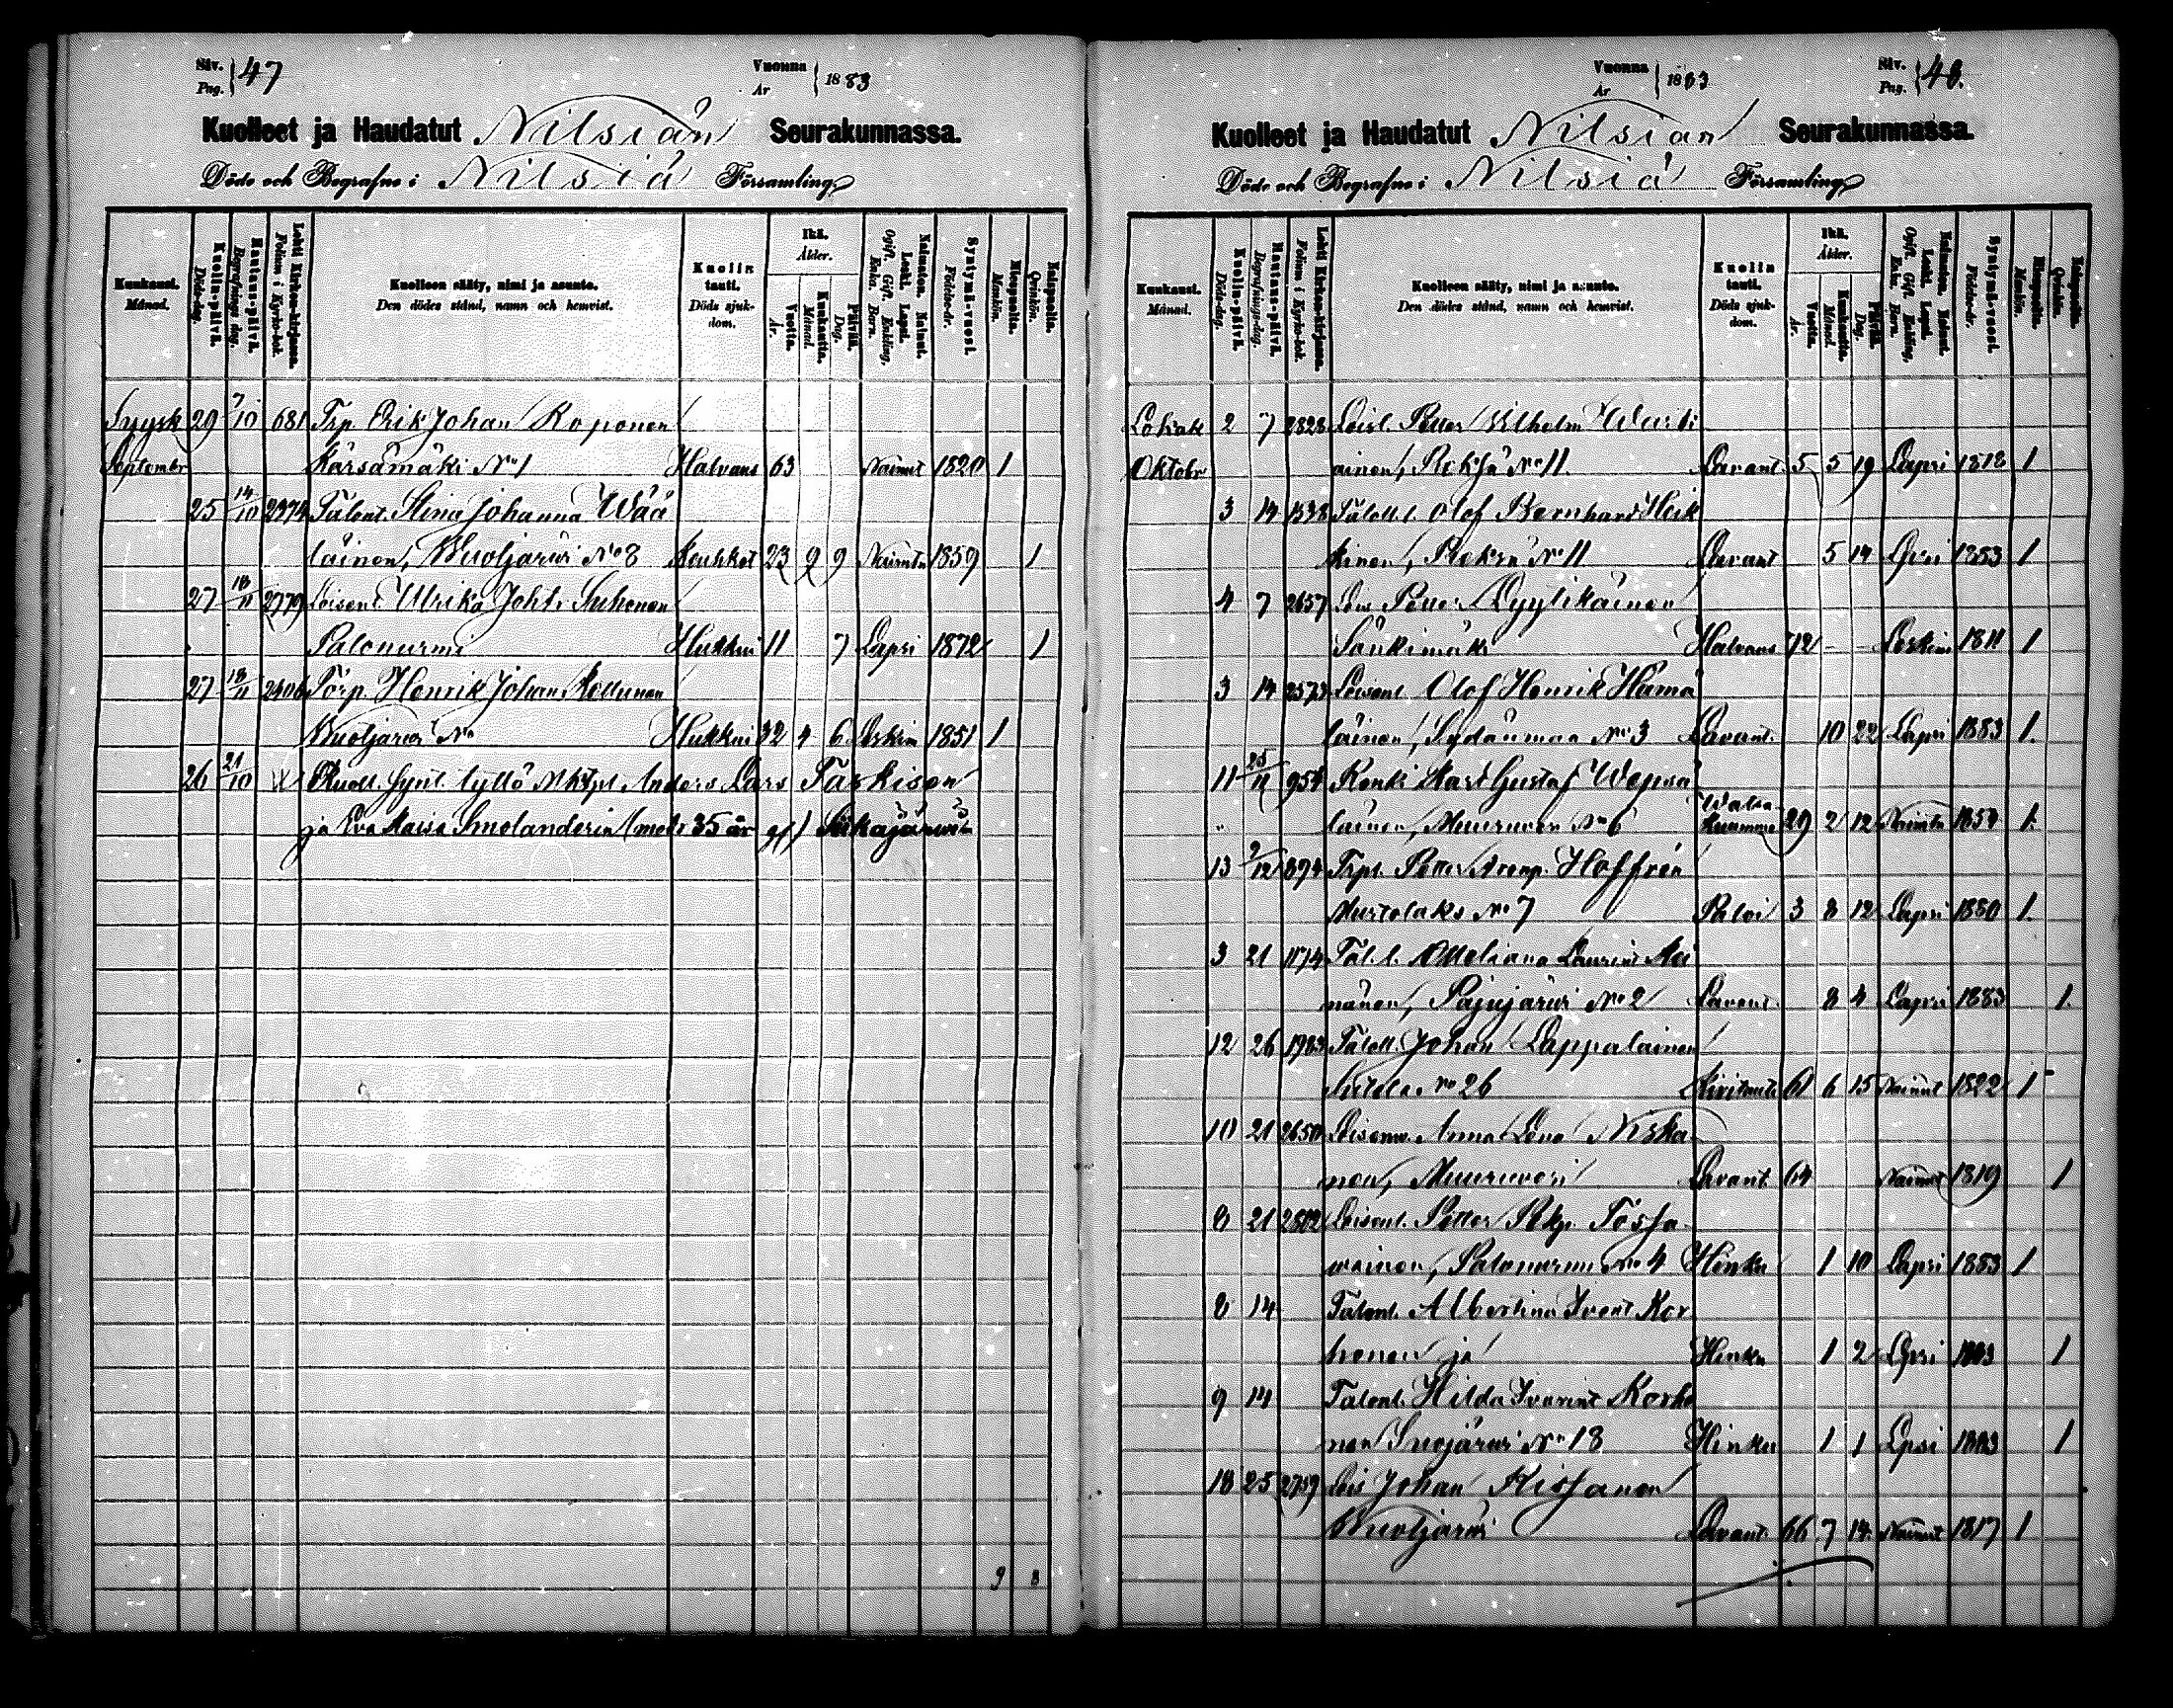 Siv. Pag. 47 Vuonna År 1883
Kuolleet ja Haudatut Nilsiän Seurakunnassa.
Döde och Begrafne i Nilsiä Församling
Kuukausi. Månad.
Kuolin-päivä. Döds-dag.
Hautaus-päivä. Begrafnings dag.
Lehti Kirkon-kirjassa. Folium i Kyrko-bok.
Kuolleen sääty, nimi ja asunto.
Den dödes stånd, namn och hemvist.
Kuolin tauti. Döds sjuk-dom.
Ikä. Ålder.
Vuotta. År.
Kuukautta. Månad.
Päivää. Dag.
Naimaton. Nainut. Leski. Lapsi. Ogift. Gift. Enkling. Enka. Barn.
Syntymä-vuosi. Födelse-år.
Miespuolia. Mankön.
Vaimopuolia. Qvinkön.
Syysk 29 7/10 681 Trp. Erik Johan Koponen
Septembr Kärsämäki No 1 Halvaus 63 Nainut 1820 1
25 14/10 2374 Talont. Stina Johanna Wää
läinen, Wuotjärwi No 8 Keuhkot 23 9 9 Naimtn 1859 1
27 18/11 2779 Loisent. Ulrika Joht. Suhonen
Palonurmi Hukkui 11 7 Lapsi 1872 1
27 18/11 2406 Torp. Henrik Johan Kettunen
Wuotjärwi No Hukkui 32 4 6 Leskin 1851 1
26 21/10 Kuoll. synt. tyttö Anders Lars Tarkisen
ja Eva Maria Smolanderin (modr 35 år gf) Siikajärwi 3
9 8
Vuonna År 1883 Siv. Pag. 48.
Kuolleet ja Haudatut Nilsiän Seurakunnassa.
Döde och Begrafne i Nilsiä Församling
Kuukausi. Månad.
Kuolin-päivä. Döds-dag.
Hautaus-päivä. Begrafnings-dag.
Lehti Kirkon-kirjassa. Folium i Kyrko-bok.
Kuolleen sääty, nimi ja asunto.
Den dödes stånd, namn och hemvist.
Kuolin tauti. Döds sjuk-dom.
Ikä. Ålder.
Vuotta. År.
Kuukautta. Månad.
Päivää. Dag.
Naimaton. Nainut. Leski. Lapsi. Ogift. Gift. Enkling, Enka. Barn.
Syntymä-vuosi. Födelse-år.
Miespuolia. Mankön.
Vaimopuolia. Qvinkön.
Lokak 2 7 2828 Loisl. Petter Vilhelm Warti
Oktobr ainen, Reksä No 11 Lavant. 5 5 19 Lapsi 1878 1
3 14 1538 Taloll. l. Olof Bernhard Heik
kinen, Reksä No 11 Lavant 5 14 Lpsi 1883 1
4 7 2657 Lois Petter Lyytikäinen
Sänkimäki Halvaus 72 - - Leskin 1811 1
3 14 2573 Loisent Olof Henrik Hämä
läinen, Sydänmaa No 3 Lavant. 10 22 Lapsi 1883 1.
11 25/11 954 Renki Karl Gustaf Wepsä
läinen, Muuruvesi No 6 Watsa- 29 2 12 Naimtn 1854 1.
13 9/12 894 Trpl. Petter Hoffrén
Murtolaks No 7 Paloi 3 8 12 Lapsi 1880 1.
3 21 1174 Tal. t. Ottoliana Laurint Kei
nänen, Pajujärwi No 2 Lavant. 8 4 Lapsi 1883 1.
12 26 1983 Taloll. Johan Lappalainen
No 26 Kivitauti 61 6 15 Nainut 1822 1
10 21 2650 Loisenw. Anna Lena Niska
nen, Muuruvesi Lavant. 64 Nainut 1819 1
8 21 2802 Loisenl. Petter Pekp. Tossa
wainen, Palonurmi No 4 Hinku 1 10 Lapsi 1883 1
8 14 Talont. Albertina Ivarint Kor
honen ja Hinku 1 2 Lpsi 1883 1
9 14 Talont. Hilda Ivarint Korho
nen Suojärwi No 18 Hinku 1 1 Lpsi 1883 1
18 25 2759 Lois Johan Kissanen
Wuotjärwi Lavant. 66 7 14. Nainut 1817 1